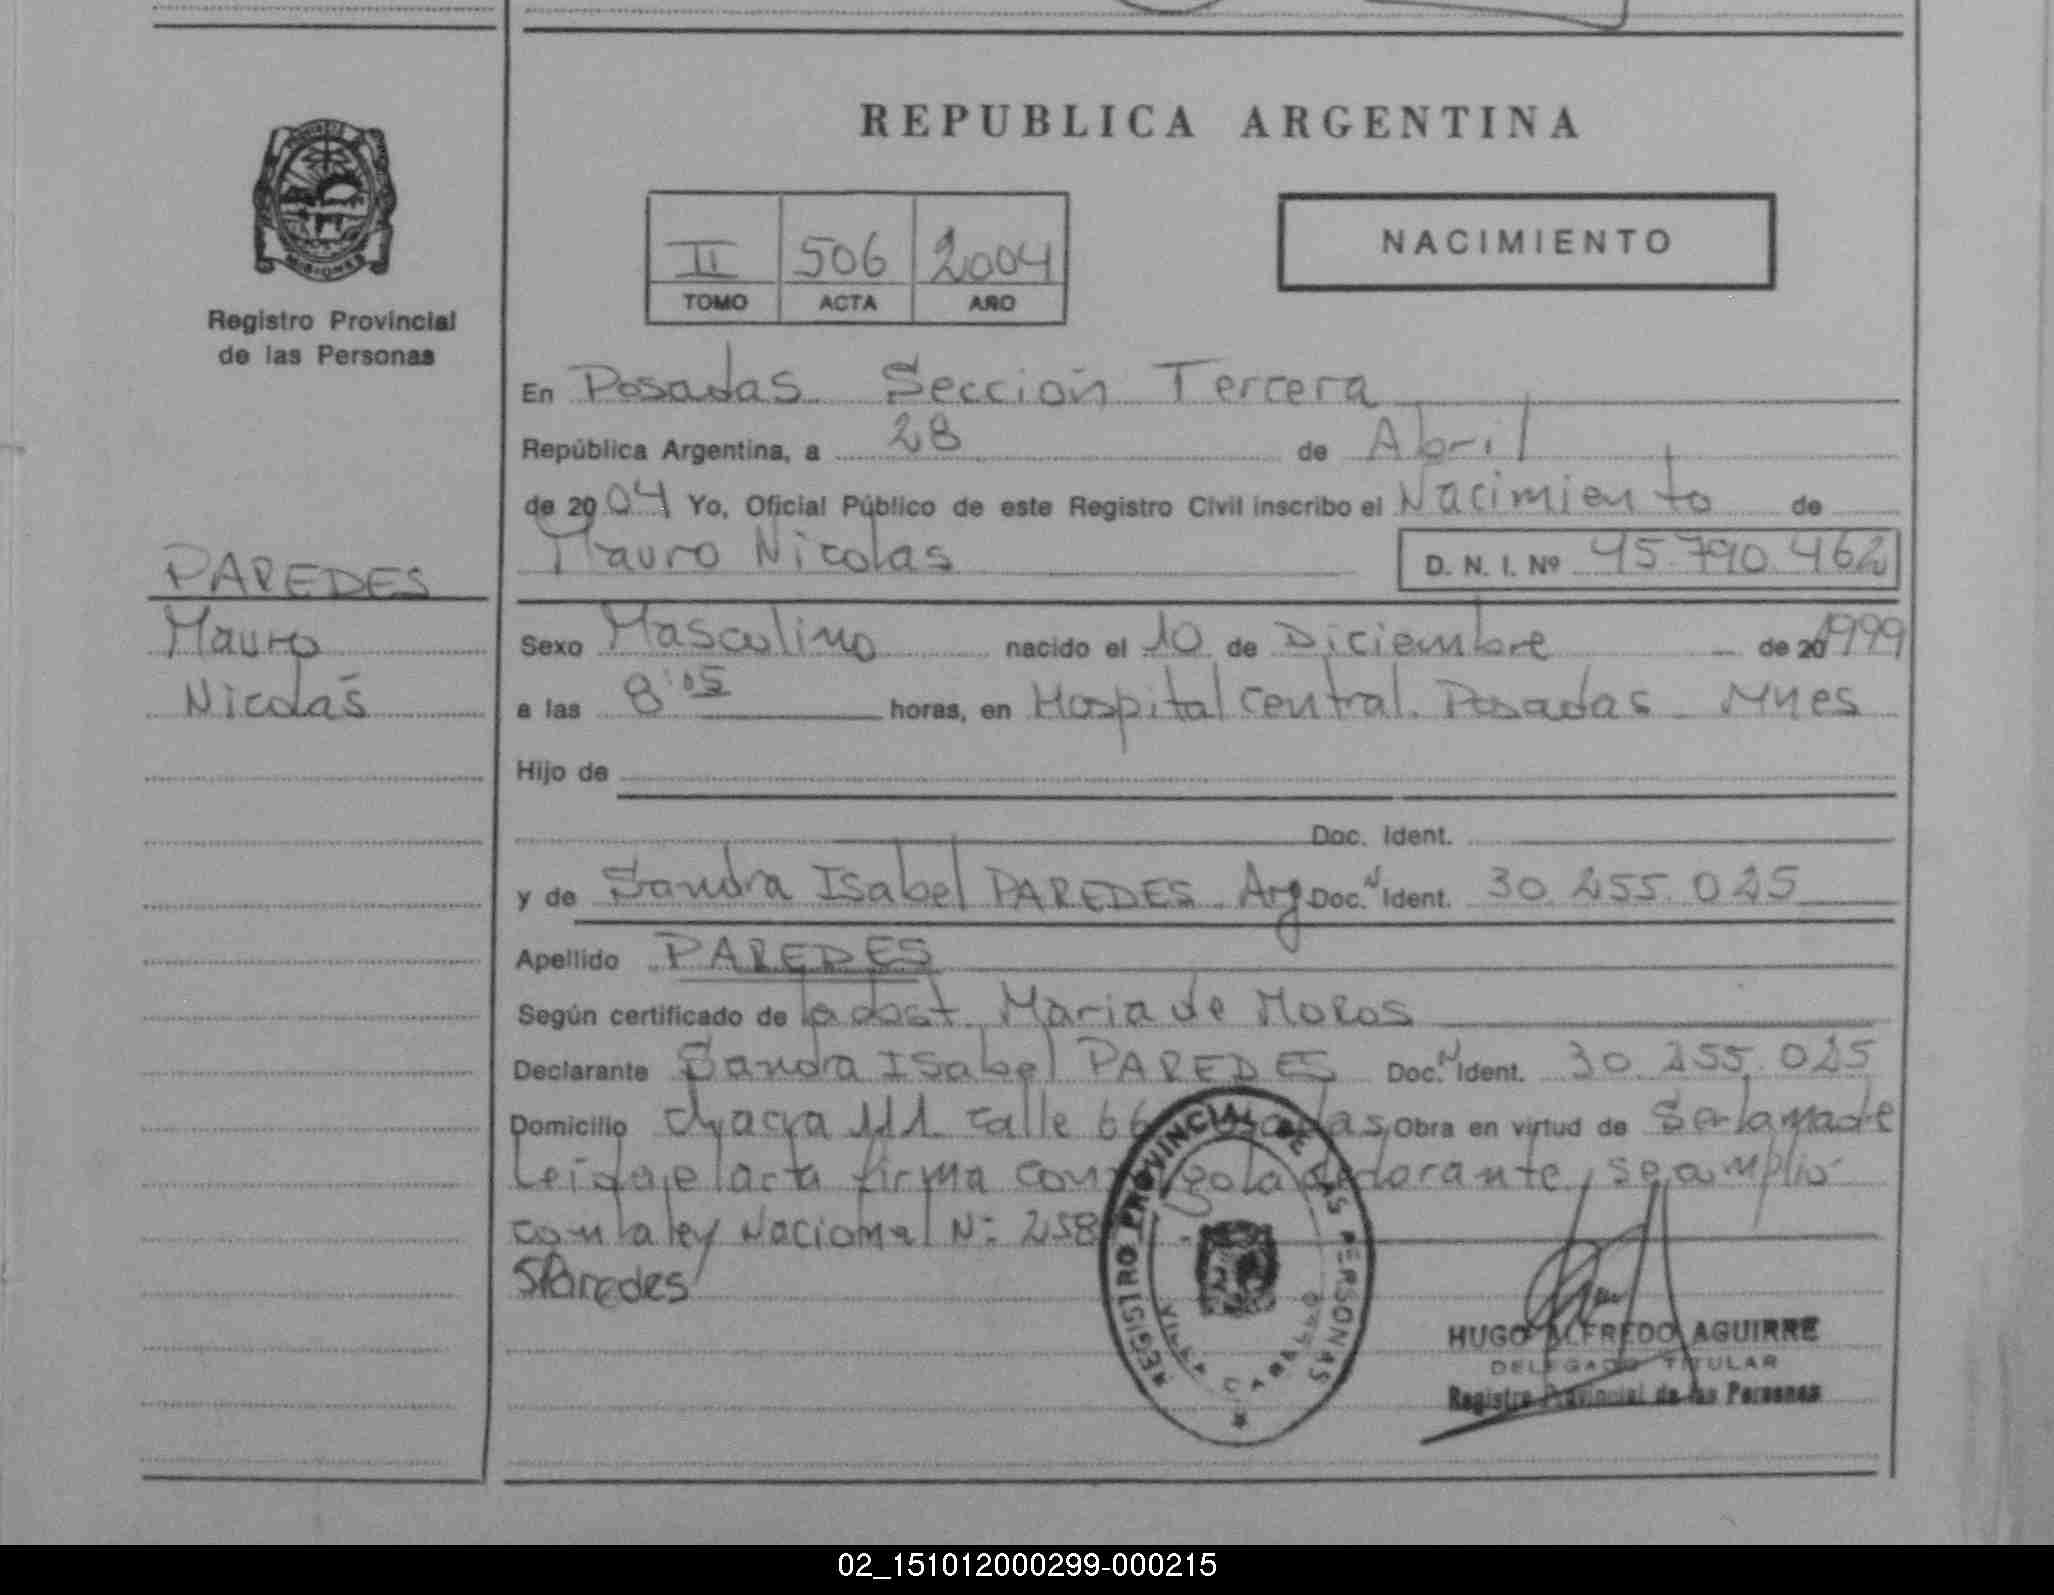 REPUBLICA ARGENTINA
MISIONES
Registro Provincial
de las Personas
II 506 2004
TOMO ACTA AÑO
NACIMIENTO
En Posadas Sección Tercera
República Argentina, a 28 de Abril
de 2004 Yo, Oficial Público de este Registro Civil inscribo el Nacimiento de
Mauro Nicolas D. N. I. Nº 45.790.462
PAREDES
Mauro
Nicolás
Sexo Masculino nacido el 10 de Diciembre de 20 1999
a las 8:05 horas, en Hospital Central. Posadas Mnes
Hijo de
Doc. Ident.
y de Sandra Isabel PAREDES Arg Doc. N Ident. 30.255.025
Apellido PAREDES
Según certificado de la obst. Maria de Moros
Declarante Sandra Isabel PAREDES Doc. N Ident. 30.255.025
Domicilio chacra 111 calle 66 Obra en virtud de Ser la madre
Leida el acta firma declarante, se amplio
con la ley Nacional N: 258
SParedes
REGISTRO PROVINCIAL DE LAS PERSONAS
VILLA CABELLO
HUGO ALFREDO AGUIRRE
DELEGADO TITULAR
Registro Provincial de las Personas
02_151012000299-000215